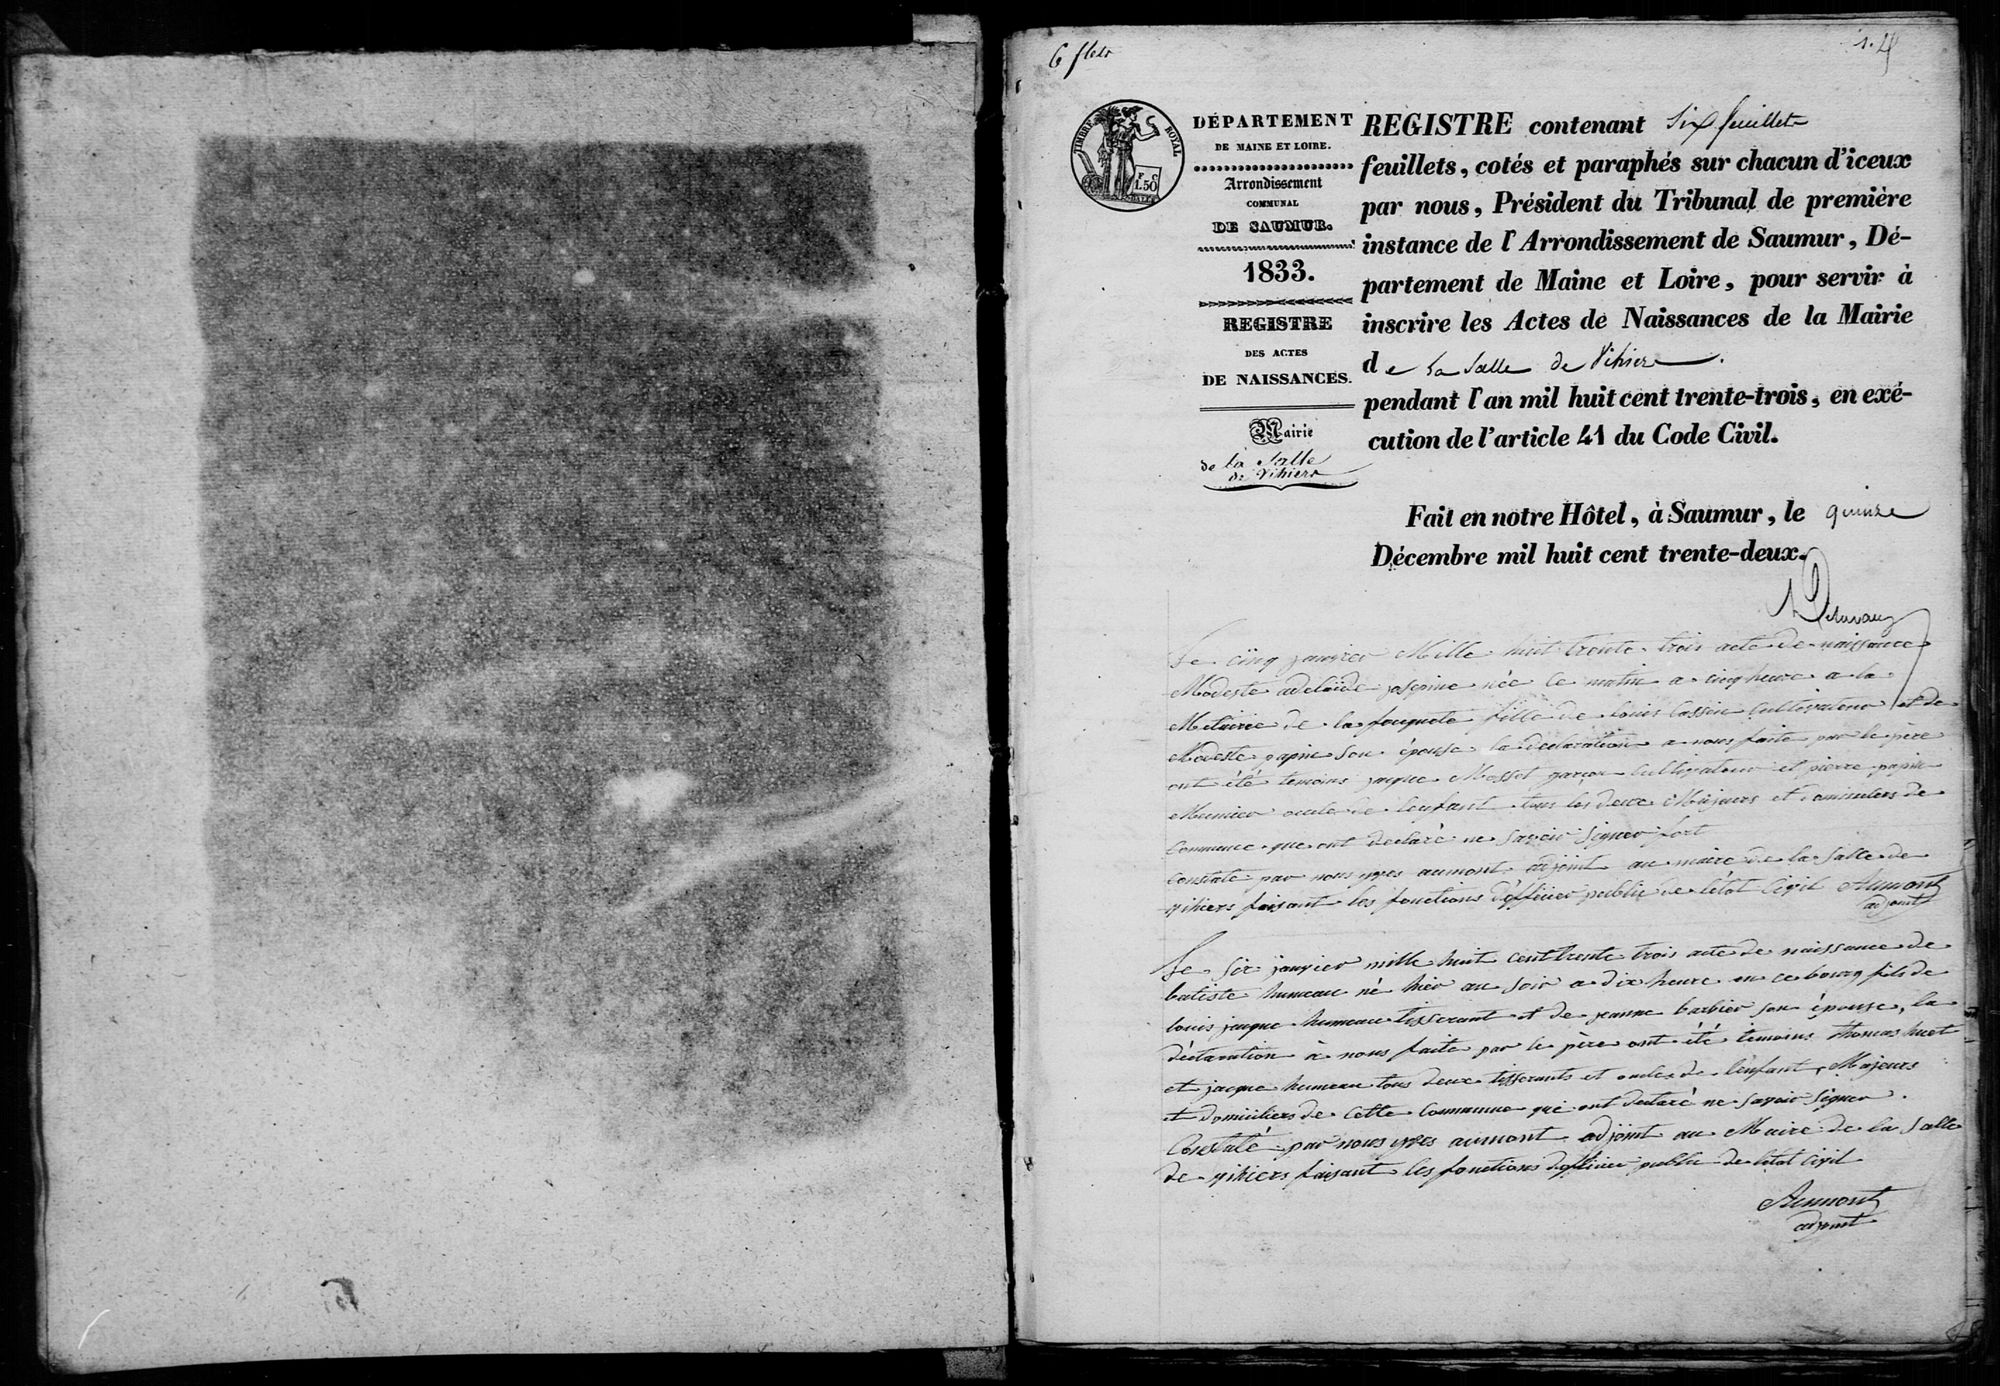 6 flets
TIMBRE ROYAL
F. C.
1.50
DÉPARTEMENT
DE MAINE ET LOIRE.
Arrondissement
COMMUNAL
DE SAUMUR.
1833.
REGISTRE
DES ACTES
DE NAISSANCES.
Mairie
de la Salle
de Vihiers
REGISTRE contenant Six feuillets
feuillets, cotés et paraphés sur chacun d'iceux
par nous, Président du Tribunal de première
instance de l'Arrondissement de Saumur, Dé-
partement de Maine et Loire, pour servir à
inscrire les Actes de Naissances de la Mairie
de La Salle de Vihiers.
pendant l'an mil huit cent trente-trois, en exé-
cution de l'article 41 du Code Civil.
Fait en notre Hôtel, à Saumur, le quinze
Décembre mil huit cent trente-deux.
Le cinq janvier Mille huit trente trois acte de naissance
Modeste adelaide née ce matin a cinq heure a la
Metairie de la fouquete fille de Louis Cassin Cultivateur et de
Modeste papin son épouse la declaration a nous faite par le père
ont été temoins jacque garçon Cultivateur et pierre papin
Meunier oncle de l'enfant tous les deux Majeurs et domiciliers de
Commune que ont declaré ne savoir signer
Constaté par nous yves aumont adjoint au maire de la Salle de
vihiers faisant les fonctions d'officier public de l'état Civil Aumont
adjoint
Le Six janvier mille huit cent trente trois acte de naissance de
batiste humeau né hier au soir a dix heure en ce bourg fils de
louis jacque humeau tisserant et de jeanne barbier son épouse, la
déclaration à nous faite par le père ont été témoins thomas huet
et jacque humeau tous deux tisserants et oncles de l'enfant, Majeurs
et domiciliers de cette Commune qui ont declaré ne savoir Signer.
Constaté par nous yves aumont adjoint au Maire de la Salle
de vihiers faisant les fonctions d'officier public de letat civil
Aumont
adjoint